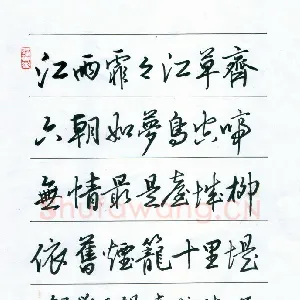 江雨霏々江草齊
六朝如夢鳥空啼
無情最是臺城柳
依舊煙籠十里堤